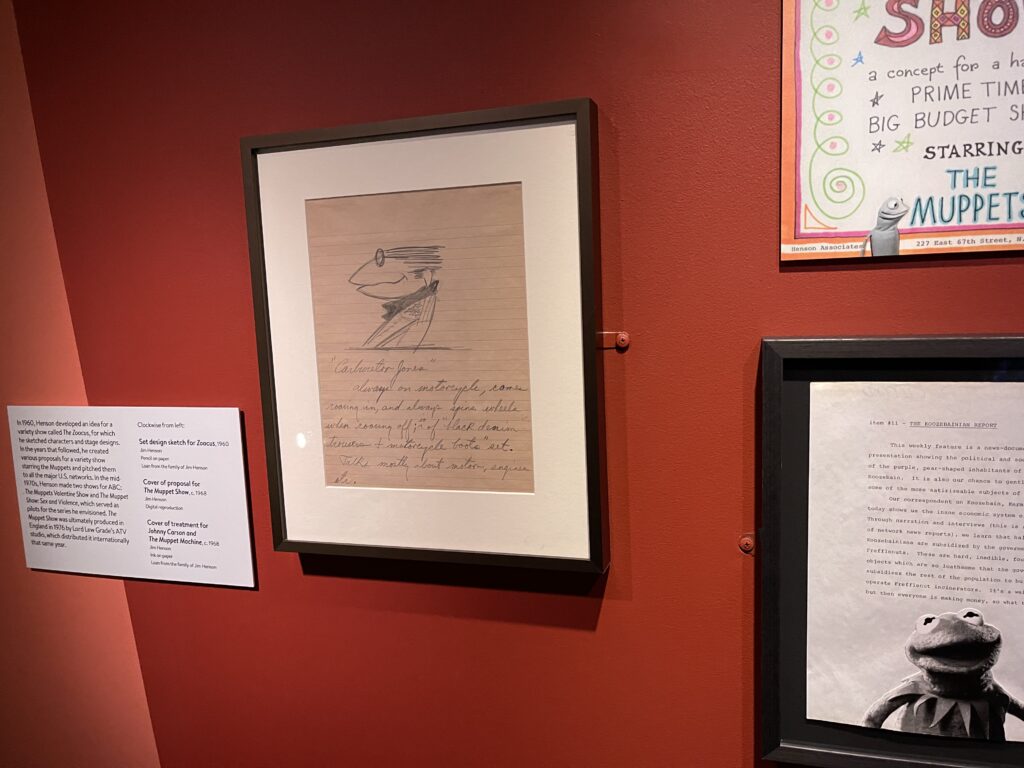 In 1960, Henson developed an idea for a
variety show called The Zoocus, for which
he sketched characters and stage designs.
In the years that followed, he created
various proposals for a variety show
starring the Muppets and pitched them
to all the major U.S. networks. In the mid-
1970s, Henson made two shows for ABC:
The Muppets Valentine Show and The Muppet
Show: Sex and Violence, which served as
pilots for the series he envisioned. The
Muppet Show was ultimately produced in
England in 1976 by Lord Lew Grade's ATV
studio, which distributed it internationally
that same year.
Clockwise from left:
Set design sketch for Zoocus, 1960
Jim Henson
Pencil on paper
Loan from the family of Jim Henson
Cover of proposal for
The Muppet Show, c. 1968
Jim Henson
Digital reproduction
Cover of treatment for
Johnny Carson and
The Muppet Machine, c. 1968
Jim Henson
Ink on paper
Loan from the family of Jim Henson
"Carburetor Jones"
always on motorcycle, comes
roaring in, and always spins wheels
when roaring off; of "black denim
trousers & motorcycle boots" set.
Talks mostly about motors, engines
etc.
SHO
a concept for a ha
PRIME TIME
BIG BUDGET S
STARRING
THE
MUPPETS
Henson Associates
227 East 67th Street, N.
item #11 - THE KOOZEBAINIAN REPORT
This weekly feature is a news-docum
presentation showing the political and so
of the purple, pear-shaped inhabitants of
Koozebain. It is also our chance to gent
some of the most satirizable subjects of
Our correspondent on Koozebain, Ker
today shows us the inane economic system o
Through narration and interviews (this is
of network news reports), we learn that hal
Koozebainians are subsidized by the governme
Preffienuts. These are hard, inedible, fou
objects which are so loathsome that the gov
subsidizes the rest of the population to bu
operate Preffienut incinerators. It's a wa
but then everyone is making money, so what